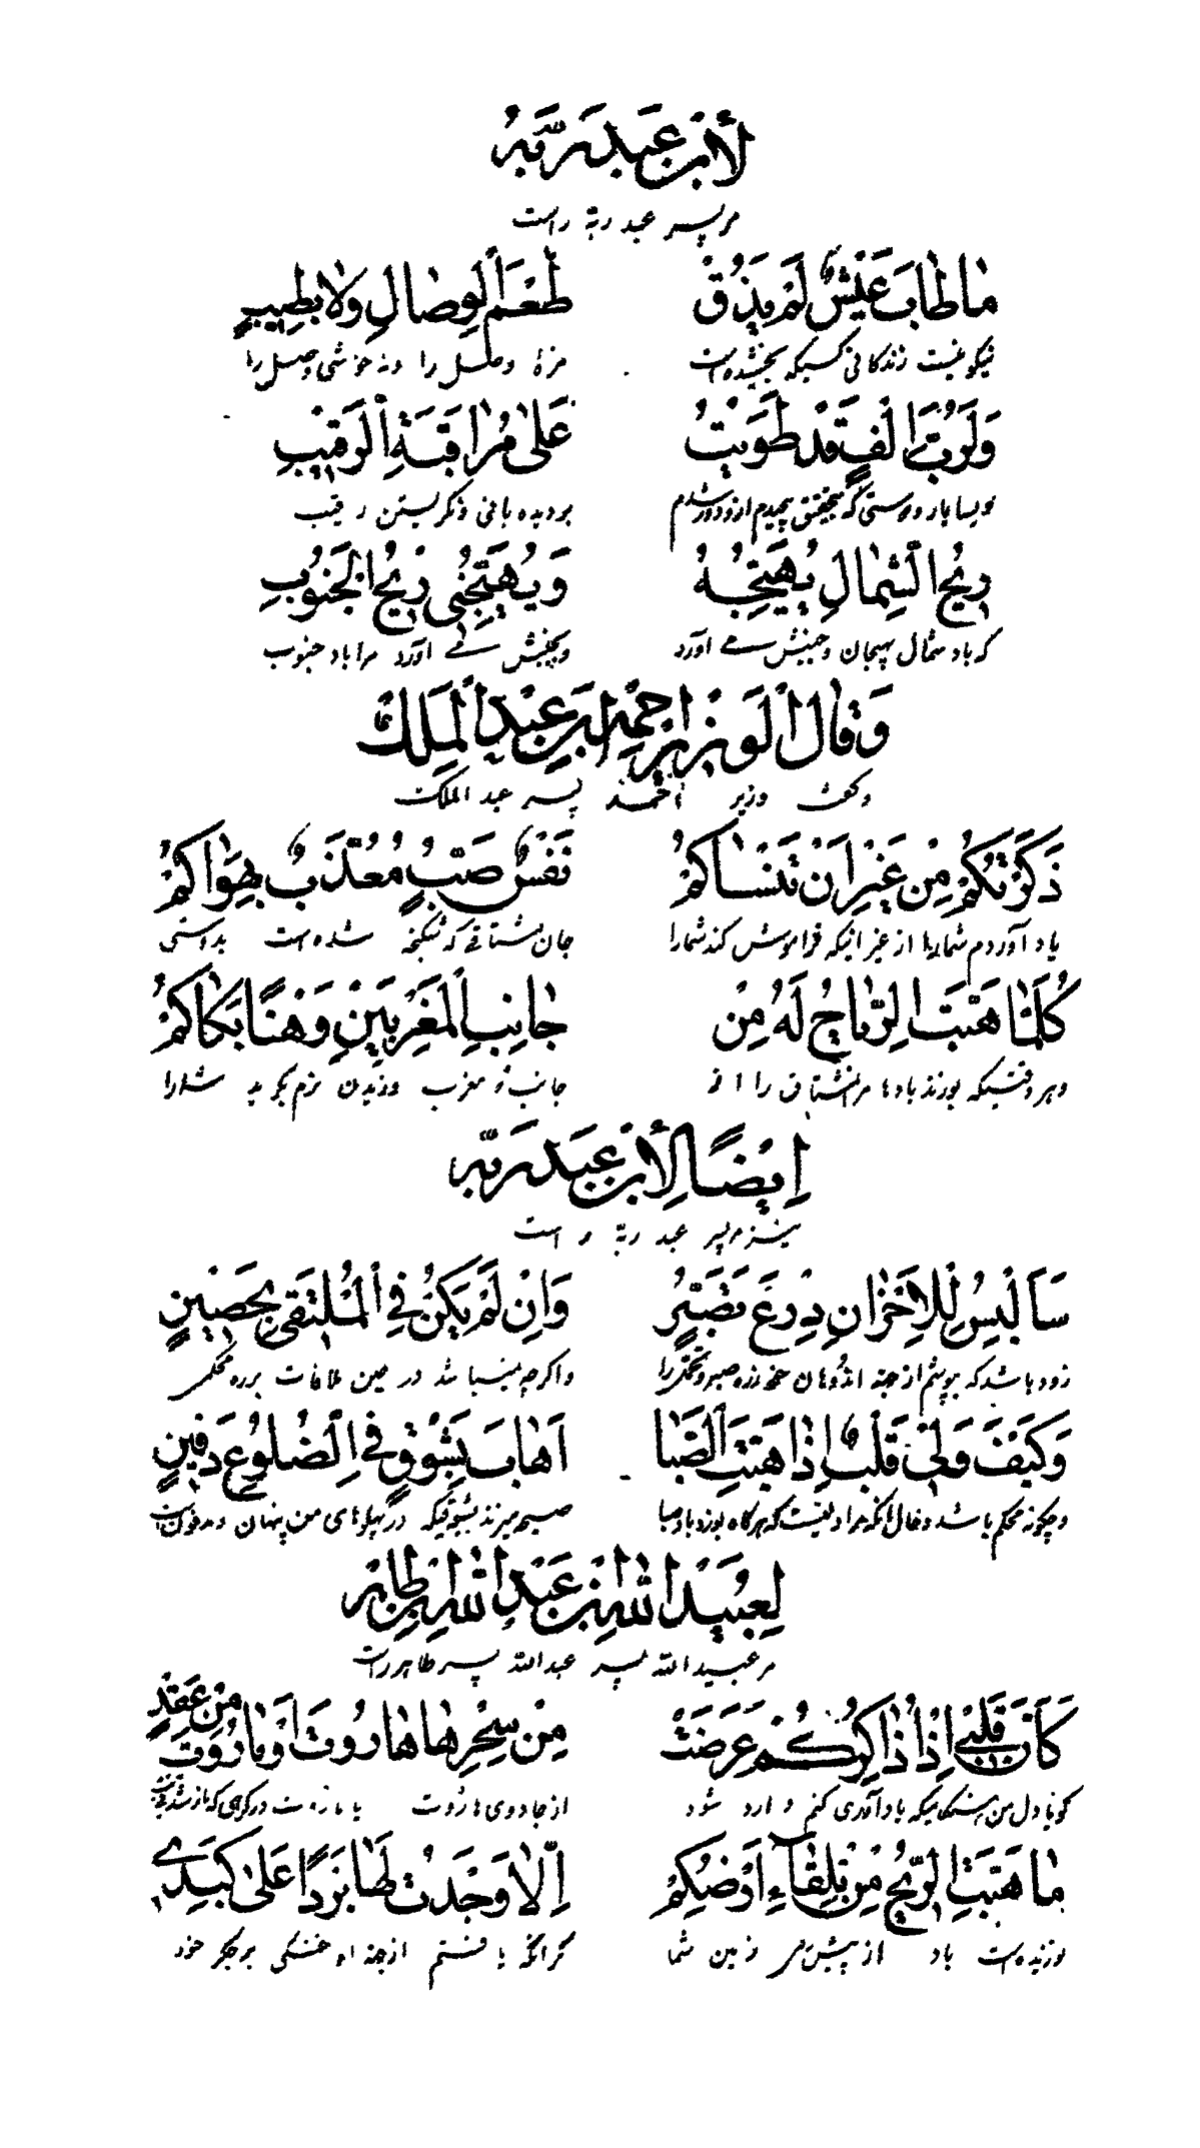 لأبن عبد ربه
مر پسر عبد ربه راست
ما طابَ عَيْشٌ لَمْ يَذُقْ طَعْمَ الوِصالِ وَلا بِطِيبٍ
نیکو نیست زندگانی کسیکه نچشیده است مزهٔ وصل را ونه خوشی وصل را
وَلَرُبَّ اِلْفٍ قَدْ طَوَيْتُ عَلىٰ مُراقَبَةِ الرَقيبِ
بسا یار و دوستی که پیچیدم از ودور شدم بر دیده بانی ونگریستن رقیب
ريحُ الشِمٰالِ يُهَيِّجُهُ وَيُهَيِّجُني ريحُ الجَنُوبِ
که باد شمال بهیجان وجنبش می آورد وبجنبش می آورد مرا باد جنوب
وَقالَ الوَزيرُ احمد بن عَبْدِ المَلِك
وگفت وزیر احمد پسر عبد الملک
ذَكَرَتْكُمْ مِنْ غَيْرِ اَنْ تَنْسٰاكُمْ نَفْسُ صَبٍّ مُعَذَّبٍ بِهَوٰاكُمْ
یاد آوردم شمارا از غیر اینکه فراموش کند شمارا جان مشتاقی که شکنجه شده است بدوستی
كُلَّمٰا هَبَّتِ الرِّيٰاحُ لَهُ مِنْ جانِبِ المَغْرِبَيْنِ وَهْنًا بَكٰاكُمْ
وهر وقتیکه بوزند بادها مر مشتاق را از جانب دو مغرب وزیدن نرم بگرید شمارا
اِيْضًا لِأبن عبد ربه
نیز مر پسر عبد ربه راست
سَاَلْبِسُ لِلاَحْزٰانِ دِرْعَ تَصَبُّرٍ وَاِنْ لَمْ يَكُنْ فِي المُلْتَقى بِحَصينٍ
زود باشد که بپوشم از جهة اندوهان زره صبر را واگرچه نمیباشد در حین ملاقات بزره محکمی
وَكَيْفَ وَلي قَلْبٌ اِذٰا هَبَّتِ الصَّبٰا اَهٰابَ بِشَوْقٍ فِي الضُلُوعِ دَفينٍ
وچگونه محکم باشد وحال آنکه مرا دلیست که هرگاه بوزد باد صبا صیحه میزند بشوقیکه در پهلوهای من پنهان ومدفون است
لِعُبَيْدِ اللهِ بْنِ عَبْدِ اللهِ بْنِ طاهر
مر عبید الله پسر عبد الله پسر طاهر راست
كَاَنَّ قَلْبي اِذٰا ذِكْرٰاكُمُ عَرَضَتْ مِنْ سِحْرِ هٰارُوتَ اَوْ مٰارُوتَ مِنْ عُقَدٍ
گویا دل من هنگامیکه یادآوری کنم وارد شود از جادوی هاروت یا ماروت در گرهی که
ما هَبَّتِ الرّيحُ مِنْ تِلْقٰاءِ اَرْضِكُمْ اِلّا وَجَدْتُ لَهٰا بَرْدًا عَلىٰ كَبَدي
نوزیده است باد از پیش زمین شما مگر آنکه یافتم از جهة او خنکی بر جگر خود